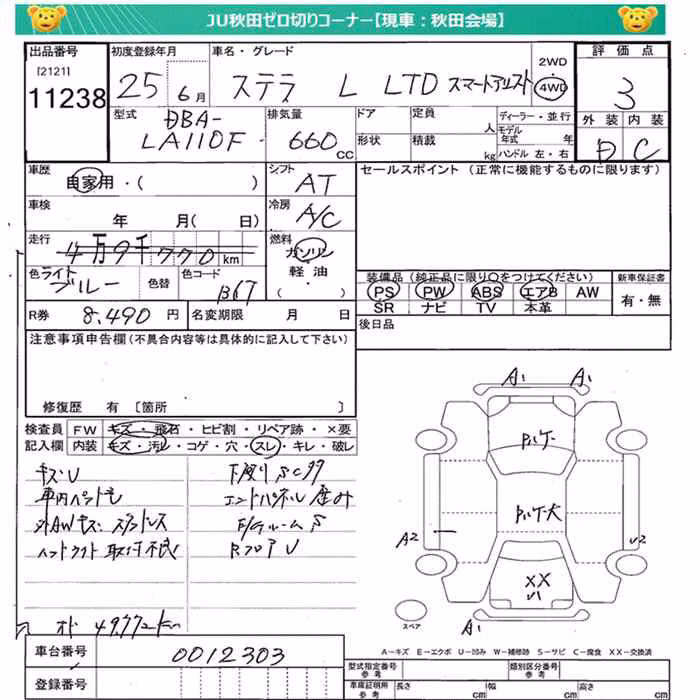 JU秋田ゼロ切りコーナー【現車：秋田会場】
出品番号
[2121]
11238
初度登録年月
25 6月
車名・グレード
ステラ L LTD スマートアシスト
2WD
4WD
評価点
3
外装 内装
D C
型式
DBA-
LA110F
排気量
660 CC
ドア
形状
定員 人
積載 kg
ディーラー・並行
モデル年式 年
ハンドル 左・右
車歴
自家用・( )
シフト
AT
セールスポイント (正常に機能するものに限ります)
車検
年 月( 日)
冷房
A/C
走行
4万9千770km
燃料
ガソリン
軽油・
( )
色 ライトブルー
色替
色コード
B67
装備品 (純正品に限り○をつけてください)
PS PW ABS エアB AW
SR ナビ TV 本革
新車保証書
有・無
R券 8,490 円
名変期限 月 日
後日品
注意事項申告欄(不具合内容等は具体的に記入して下さい)
修復歴 有〔箇所 〕
検査員
記入欄
FW キズ・飛石・ヒビ割・リペア跡・×要
内装 キズ・汚レ・コゲ・穴・スレ・キレ・破レ
キズU
下廻りSCサ
エンドパネル 歪み
ヘッドライト 取付不良
RフロアU
オド 49772km
A1 A1
A2
U2
XX
A1
スペア
A－キズ E－エクボ U－凹み W－補修跡 S－サビ C－腐食 XX－交換済
車台番号
0012303
登録番号
型式指定番号
参考
類別区分番号
参考
車庫証明用
参考
長さ cm
幅 cm
高さ cm